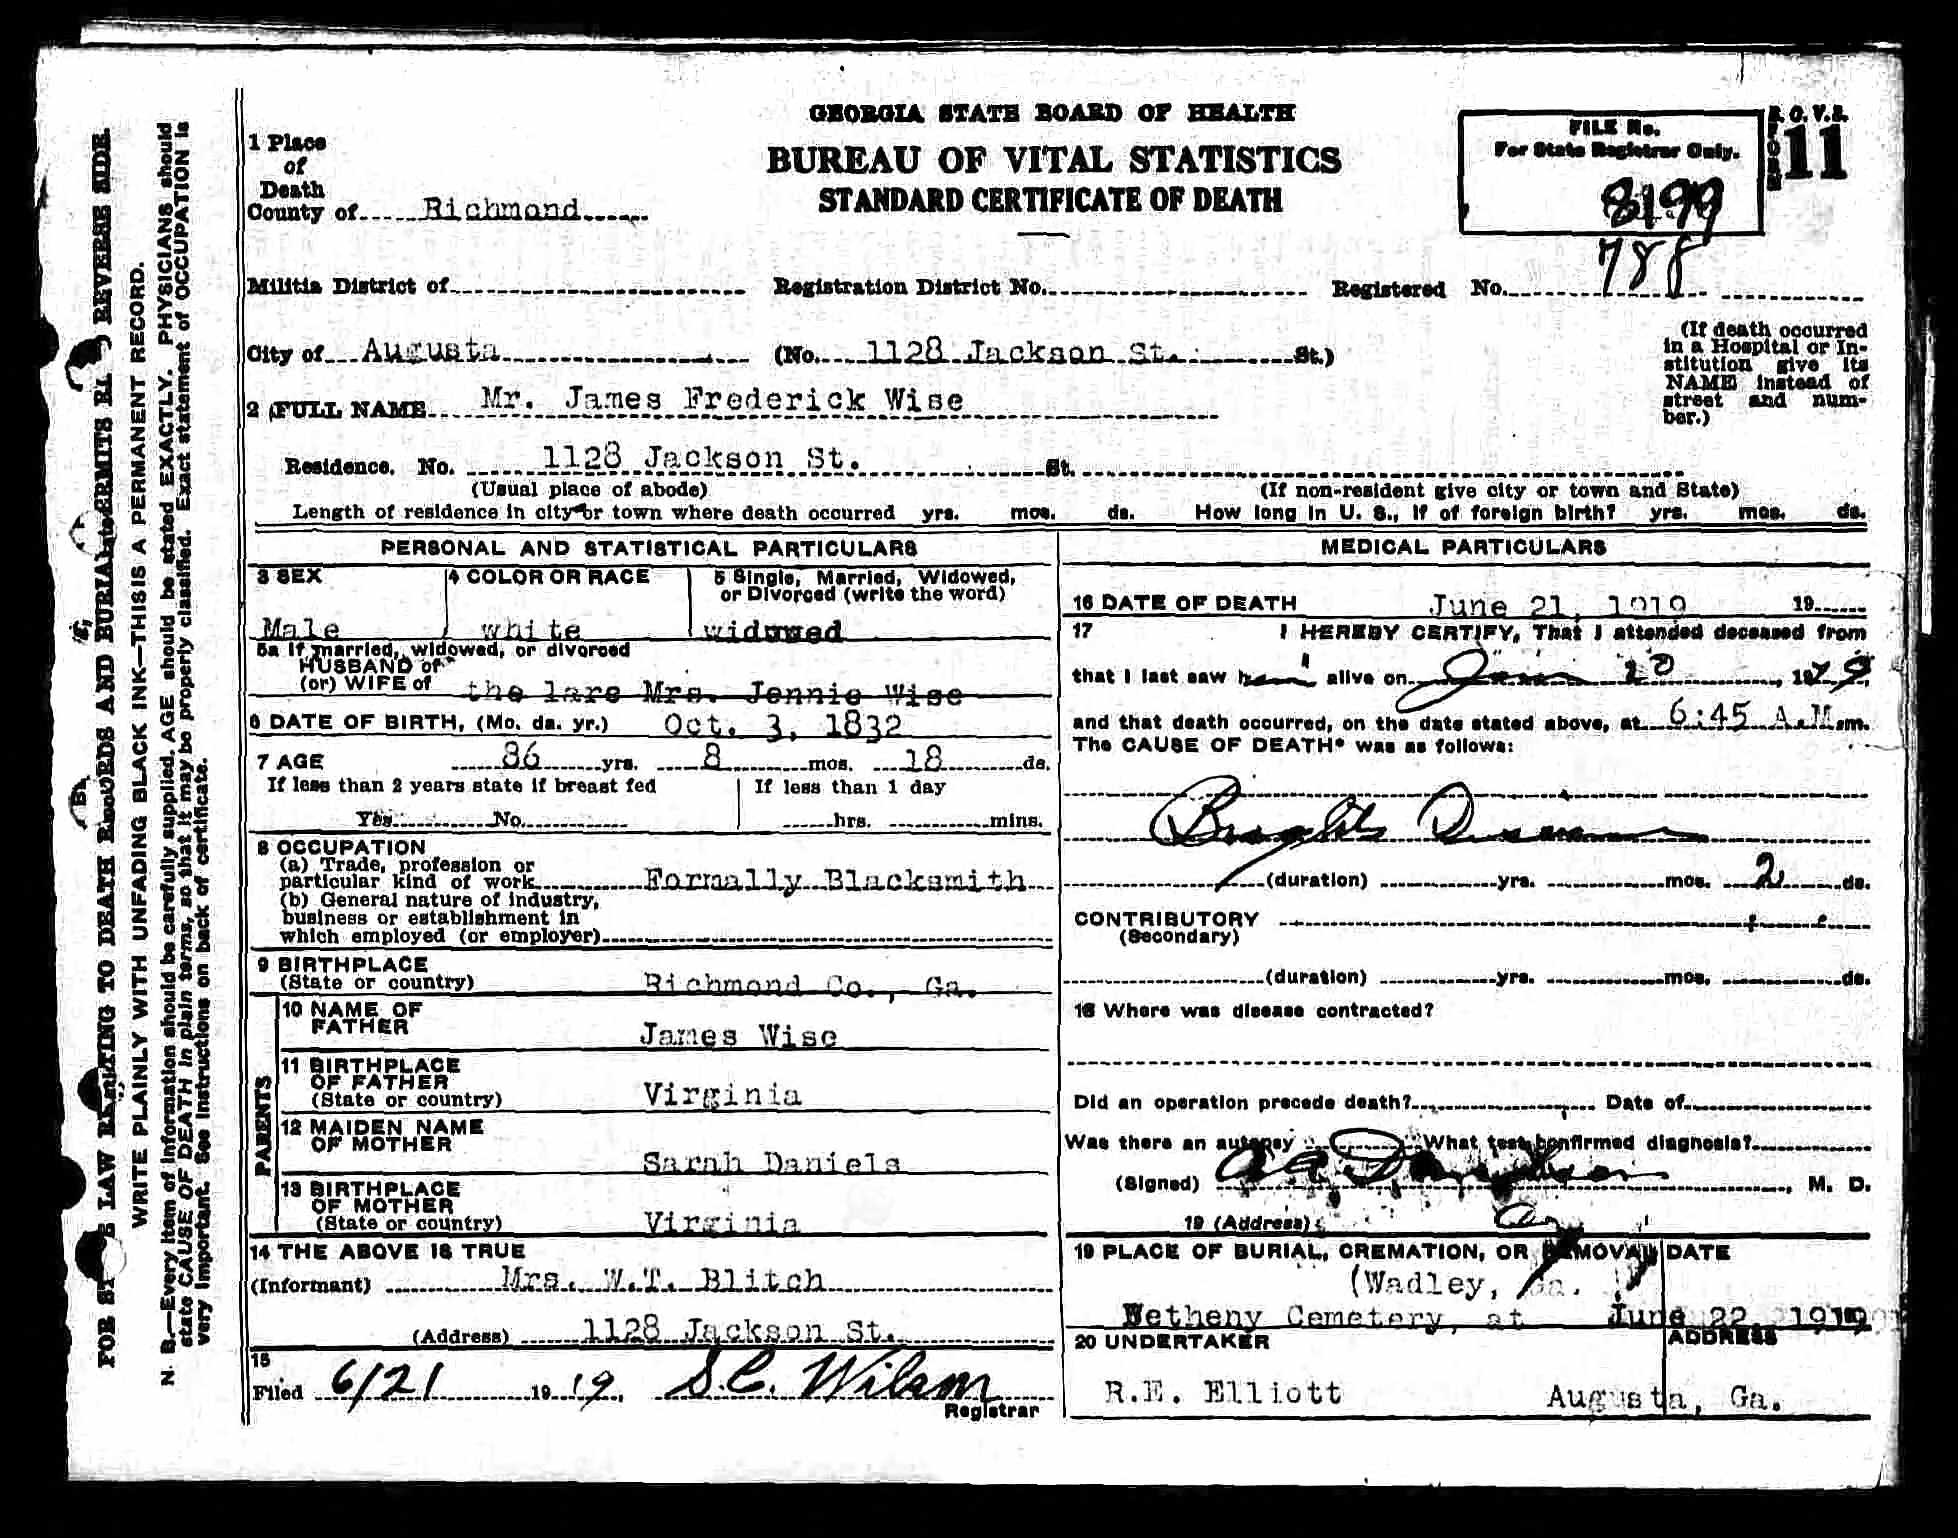 GEORGIA STATE BOARD OF HEALTH
BUREAU OF VITAL STATISTICS
STANDARD CERTIFICATE OF DEATH
FILE No.
For State Registrar Only.
8199
11
1 Place
of
Death
County of Richmond
Militia District of
Registration District No.
Registered No. 788
City of Augusta (No. 1128 Jackson St. St.)
(If death occurred
in a Hospital or In-
stitution give its
NAME instead of
street and num-
ber.)
2 FULL NAME Mr. James Frederick Wise
Residence. No. 1128 Jackson St. St.
(Usual place of abode)
(If non-resident give city or town and State)
Length of residence in city or town where death occurred yrs. mos. ds. How long in U. S., if of foreign birth? yrs. mos. ds.
PERSONAL AND STATISTICAL PARTICULARS
3 SEX
Male
4 COLOR OR RACE
white
5 Single, Married, Widowed,
or Divorced (write the word)
widowed
5a If married, widowed, or divorced
HUSBAND of
(or) WIFE of the late Mrs. Jennie Wise
6 DATE OF BIRTH, (Mo. da. yr.) Oct. 3, 1832
7 AGE 86 yrs. 8 mos. 18 ds.
If less than 2 years state if breast fed
Yes No
If less than 1 day
hrs. mins.
8 OCCUPATION
(a) Trade, profession or
particular kind of work Formally Blacksmith
(b) General nature of industry,
business or establishment in
which employed (or employer)
9 BIRTHPLACE
(State or country) Richmond Co., Ga.
PARENTS
10 NAME OF
FATHER
James Wise
11 BIRTHPLACE
OF FATHER
(State or country) Virginia
12 MAIDEN NAME
OF MOTHER
Sarah Daniels
13 BIRTHPLACE
OF MOTHER
(State or country) Virginia
14 THE ABOVE IS TRUE
(Informant) Mrs. W.T. Blitch
(Address) 1128 Jackson St.
15
Filed 6/21 1919, S.C. Wilson
Registrar
MEDICAL PARTICULARS
16 DATE OF DEATH June 21, 1919 19
17 I HEREBY CERTIFY, That I attended deceased from
that I last saw him alive on 20, 1919,
and that death occurred, on the date stated above, at 6:45 A.M. m.
The CAUSE OF DEATH* was as follows:
Brights Disease
(duration) yrs. mos. 2 ds.
CONTRIBUTORY
(Secondary)
(duration) yrs. mos. ds.
18 Where was disease contracted?
Did an operation precede death? Date of
Was there an autopsy What test confirmed diagnosis?
(Signed) M. D.
19 (Address)
19 PLACE OF BURIAL, CREMATION, OR REMOVAL
DATE
(Wadley, Ga.
Betheny Cemetery, at June 22, 1919
20 UNDERTAKER
ADDRESS
R.E. Elliott Augusta, Ga.
WRITE PLAINLY WITH UNFADING BLACK INK—THIS IS A PERMANENT RECORD.
N. B.—Every item of information should be carefully supplied. AGE should be stated EXACTLY. PHYSICIANS should
state CAUSE OF DEATH in plain terms, so that it may be properly classified. Exact statement of OCCUPATION is
very important. See instructions on back of certificate.